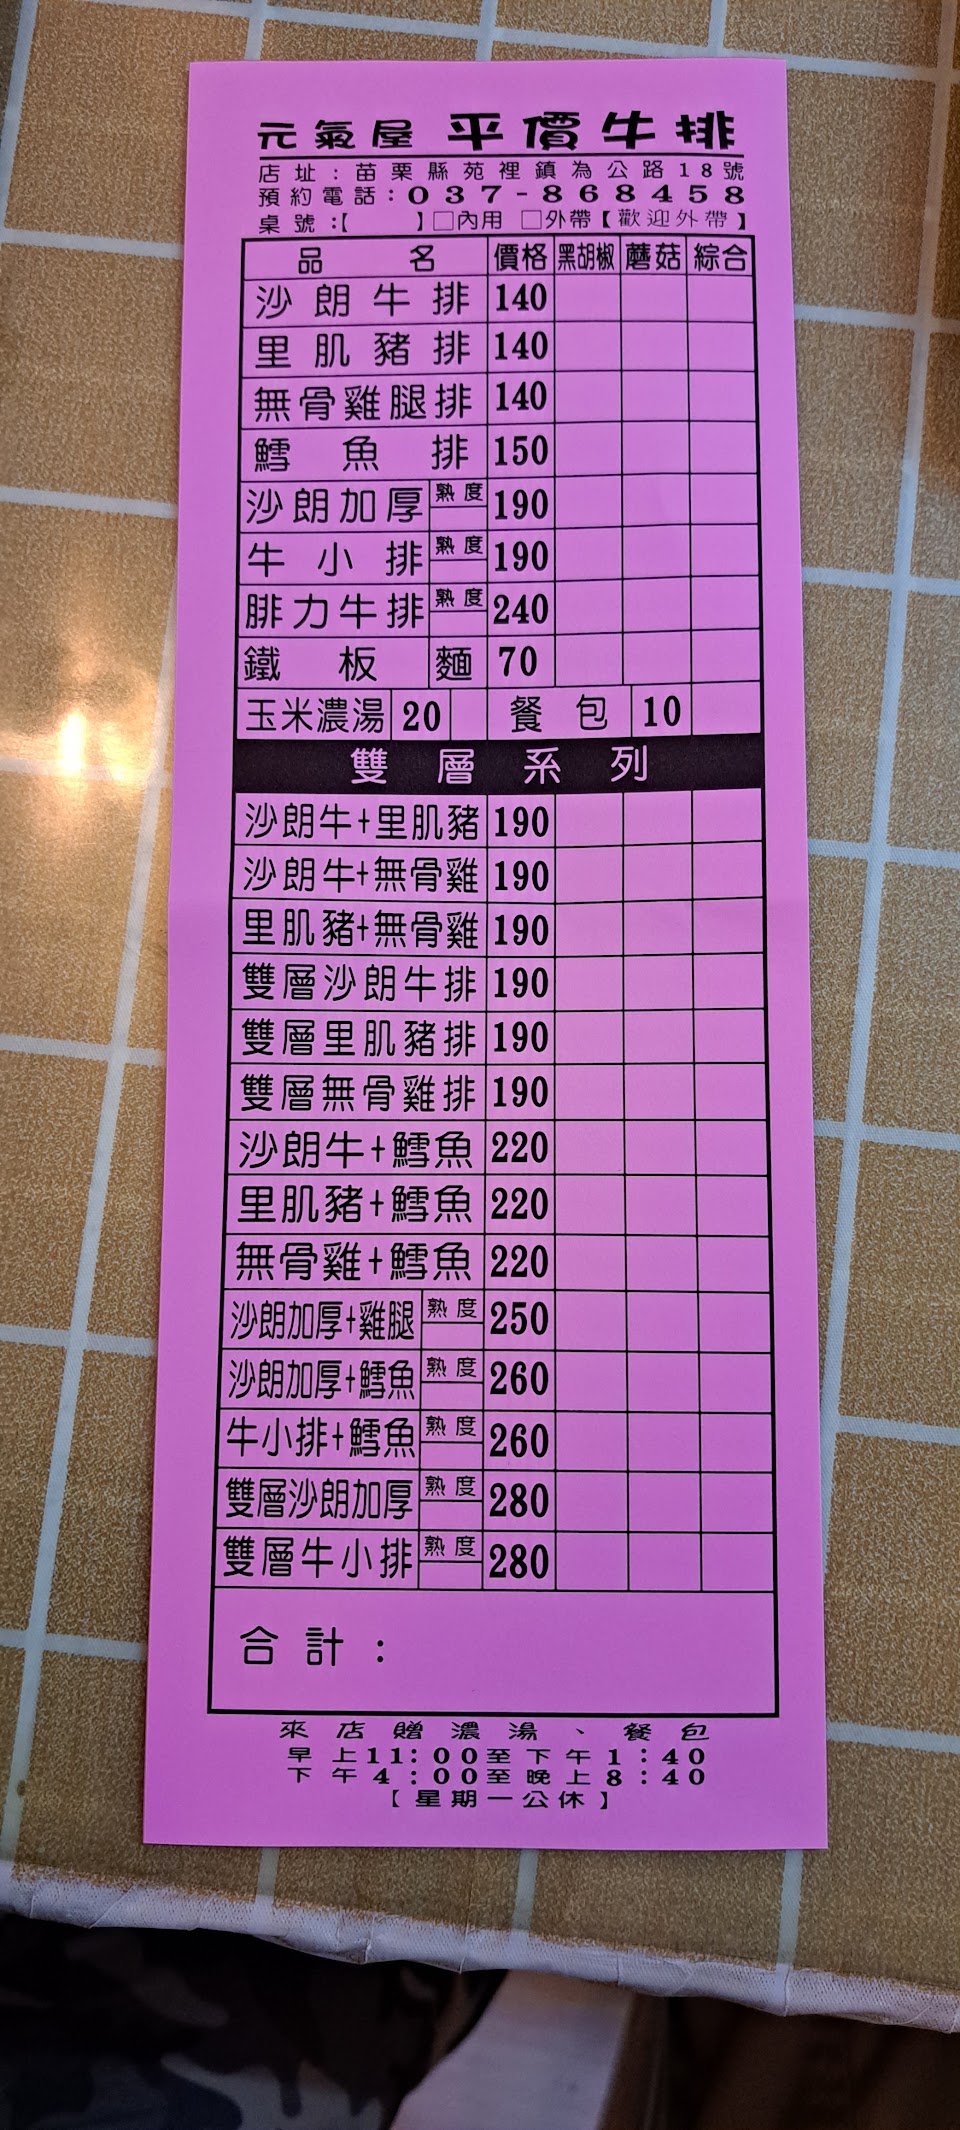 元氣屋 平價牛排
店址:苗栗縣苑裡鎮為公路18號
預約電話:037-868458
桌號:【 】□內用 □外帶【歡迎外帶】
品名 價格 黑胡椒 蘑菇 綜合
沙朗牛排 140
里肌豬排 140
無骨雞腿排 140
鱈魚排 150
沙朗加厚 熟度 190
牛小排 熟度 190
腓力牛排 熟度 240
鐵板麵 70
玉米濃湯 20 餐包 10
雙層系列
沙朗牛+里肌豬 190
沙朗牛+無骨雞 190
里肌豬+無骨雞 190
雙層沙朗牛排 190
雙層里肌豬排 190
雙層無骨雞排 190
沙朗牛+鱈魚 220
里肌豬+鱈魚 220
無骨雞+鱈魚 220
沙朗加厚+雞腿 熟度 250
沙朗加厚+鱈魚 熟度 260
牛小排+鱈魚 熟度 260
雙層沙朗加厚 熟度 280
雙層牛小排 熟度 280
合計:
來店贈濃湯、餐包
早上11:00至下午1:40
下午4:00至晚上8:40
【星期一公休】